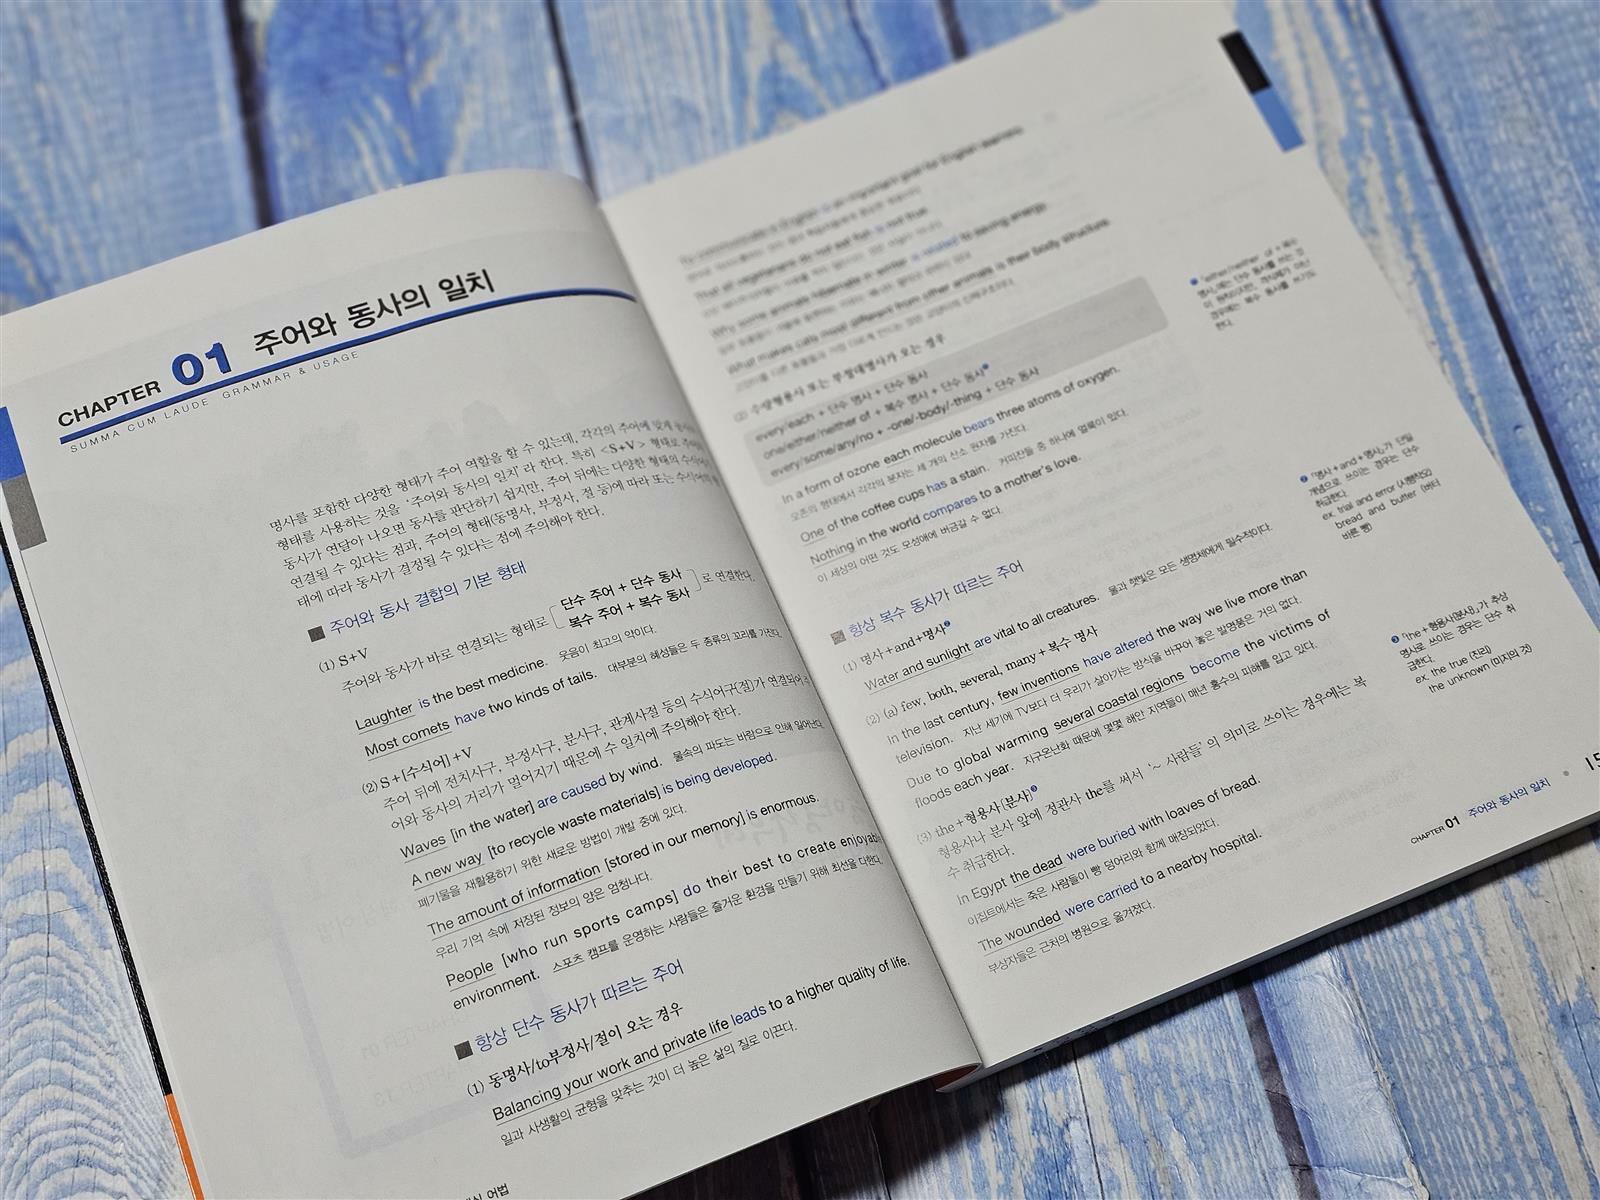 CHAPTER 01 주어와 동사의 일치
SUMMA CUM LAUDE GRAMMAR & USAGE
명사를 포함한 다양한 형태가 주어 역할을 할 수 있는데, 각각의 주어에 맞게
형태를 사용하는 것을 '주어와 동사의 일치'라 한다. 특히 <S+V> 형태로
동사가 연달아 나오면 동사를 판단하기 쉽지만, 주어 뒤에는 다양한 형태의
연결될 수 있다는 점과, 주어의 형태(동명사, 부정사, 절 등)에 따라 또는
태에 따라 동사가 결정될 수 있다는 점에 주의해야 한다.
주어와 동사 결합의 기본 형태
(1) S+V
주어와 동사가 바로 연결되는 형태로 [단수 주어 + 단수 동사
복수 주어 + 복수 동사] 로 연결한다.
Laughter is the best medicine. 웃음이 최고의 약이다.
Most comets have two kinds of tails. 대부분의 혜성들은 두 종류의 꼬리를 가진다.
(2) S+[수식어]+V
주어 뒤에 전치사구, 부정사구, 분사구, 관계사절 등의 수식어구(절)가 연결되어
어와 동사의 거리가 멀어지기 때문에 수 일치에 주의해야 한다.
Waves [in the water] are caused by wind. 물속의 파도는 바람으로 인해 일어난다.
A new way [to recycle waste materials] is being developed.
폐기물을 재활용하기 위한 새로운 방법이 개발 중에 있다.
The amount of information [stored in our memory] is enormous.
우리 기억 속에 저장된 정보의 양은 엄청나다.
People [who run sports camps] do their best to create enjoyable
environment. 스포츠 캠프를 운영하는 사람들은 즐거운 환경을 만들기 위해 최선을 다한다.
항상 단수 동사가 따르는 주어
(1) 동명사/to부정사/절이 오는 경우
Balancing your work and private life leads to a higher quality of life.
일과 사생활의 균형을 맞추는 것이 더 높은 삶의 질로 이끈다.
어법
To communicate in English is an important goal for English learners.
That all vegetarians do not eat fish is not true.
Why some animals hibernate in winter is related to saving energy.
What makes cats most different from other animals is their body structure.
(2) 수량형용사 또는 부정대명사가 오는 경우
every/each + 단수 명사 + 단수 동사
one/either/neither of + 복수 명사 + 단수 동사❶
every/some/any/no + -one/-body/-thing + 단수 동사
In a form of ozone each molecule bears three atoms of oxygen.
오존의 형태에서 각각의 분자는 세 개의 산소 원자를 가진다.
One of the coffee cups has a stain. 커피잔들 중 하나에 얼룩이 있다.
Nothing in the world compares to a mother's love.
이 세상의 어떤 것도 모성애에 버금갈 수 없다.
항상 복수 동사가 따르는 주어
(1) 명사+and+명사❷
Water and sunlight are vital to all creatures. 물과 햇빛은 모든 생명체에게 필수적이다.
(2) (a) few, both, several, many+복수 명사
In the last century, few inventions have altered the way we live more than
television. 지난 세기에 TV보다 더 우리가 살아가는 방식을 바꾸어 놓은 발명품은 거의 없다.
Due to global warming several coastal regions become the victims of
floods each year. 지구온난화 때문에 몇몇 해안 지역들이 매년 홍수의 피해를 입고 있다.
(3) the+형용사[분사]❸
형용사나 분사 앞에 정관사 the를 써서 '~ 사람들'의 의미로 쓰이는 경우에는 복
수 취급한다.
In Egypt the dead were buried with loaves of bread.
이집트에서는 죽은 사람들이 빵 덩어리와 함께 매장되었다.
The wounded were carried to a nearby hospital.
부상자들은 근처의 병원으로 옮겨졌다.
❶ 「either/neither of + 복수
명사」에는 단수 동사를 쓰는 것
이 원칙이지만, 격식체가 아닌
경우에는 복수 동사를 쓰기도
한다.
❷ 「명사+and+명사」가 단일
개념으로 쓰이는 경우는 단수
취급한다.
ex. trial and error (시행착오)
bread and butter (버터
바른 빵)
❸ 「the+형용사[분사]」가 추상
명사로 쓰이는 경우는 단수 취
급한다.
ex. the true (진리)
the unknown (미지의 것)
CHAPTER 01 주어와 동사의 일치 • 15